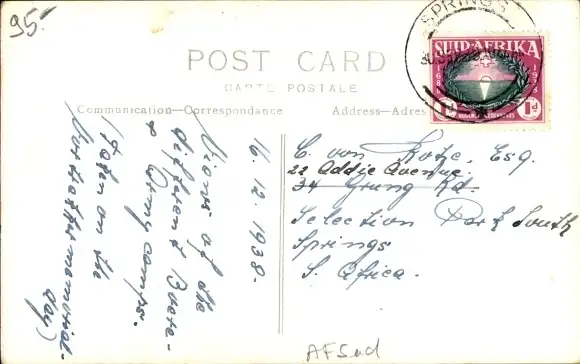 95.
SPRINGS
SUID-AFRIKA
1688
1938
1d
1d
POST CARD
CARTE POSTALE
Communication—Correspondance
Address—Adres
16.12.1938.
Views of the
different Boere-
& Army camps.
(taken on the
Voortrekkermemorial-
day)
C. von Kotze, Esq.
22 Addie Avenue.
34 Grung Rd.
Selection Park South
Springs
S. Africa.
AFSud